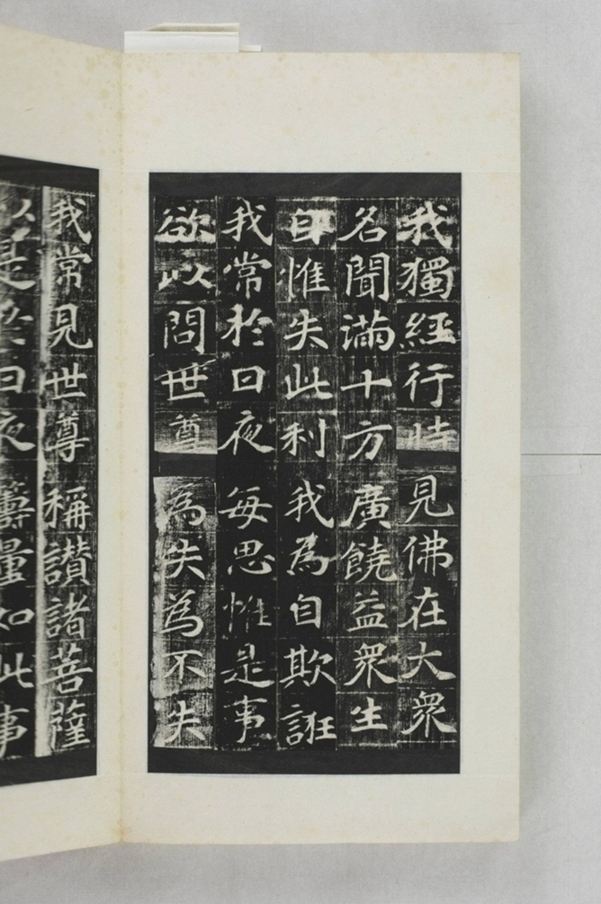 我獨經行時 見佛在大衆
名聞滿十方 廣饒益衆生
自惟失此利 我為自欺誑
我常於日夜 每思惟是事
欲以問世尊 為失為不失
我常見世尊 稱讃諸菩薩
以是於日夜 籌量如此事